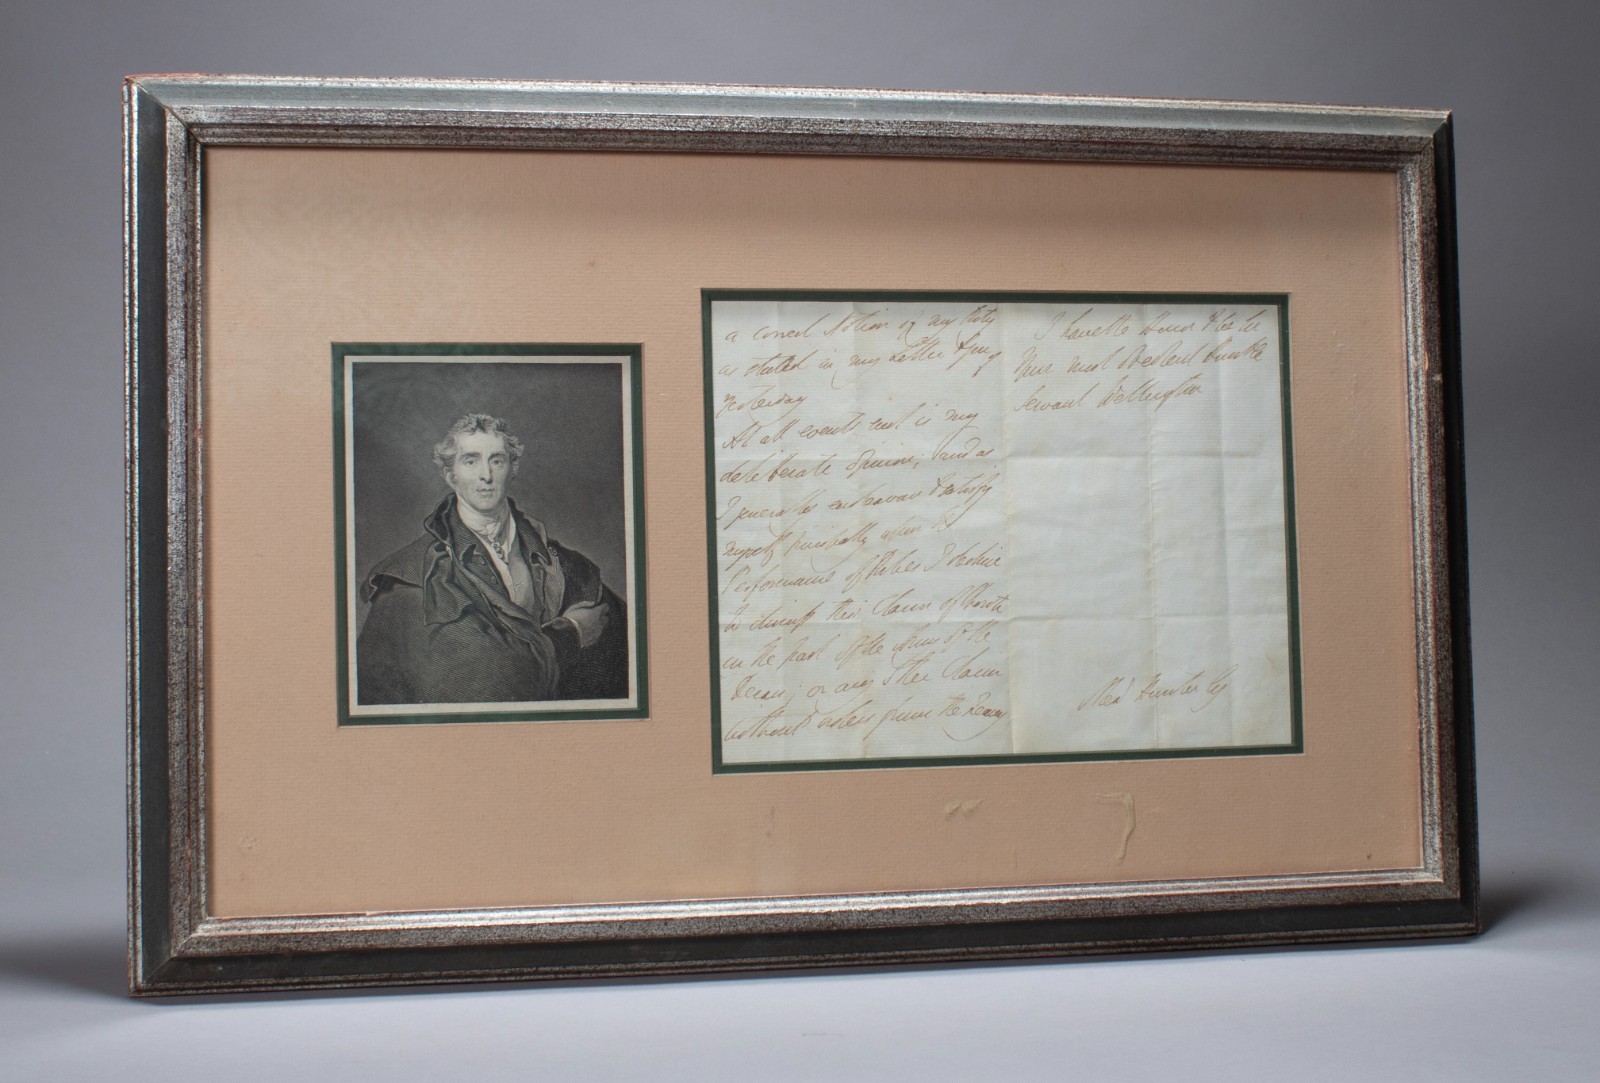 a correct Notion of my Duty
as stated in my Letter
yesterday
At all events such is my
deliberate opinion; and as
I generally endeavour to satisfy
myself principally
Performance of I decline
to discuss this Claim of
on the part of the of the
or any other Claim
without orders from the

I have the Honor to be Sir
Your most obedient humble
Servant Wellington

Hunter